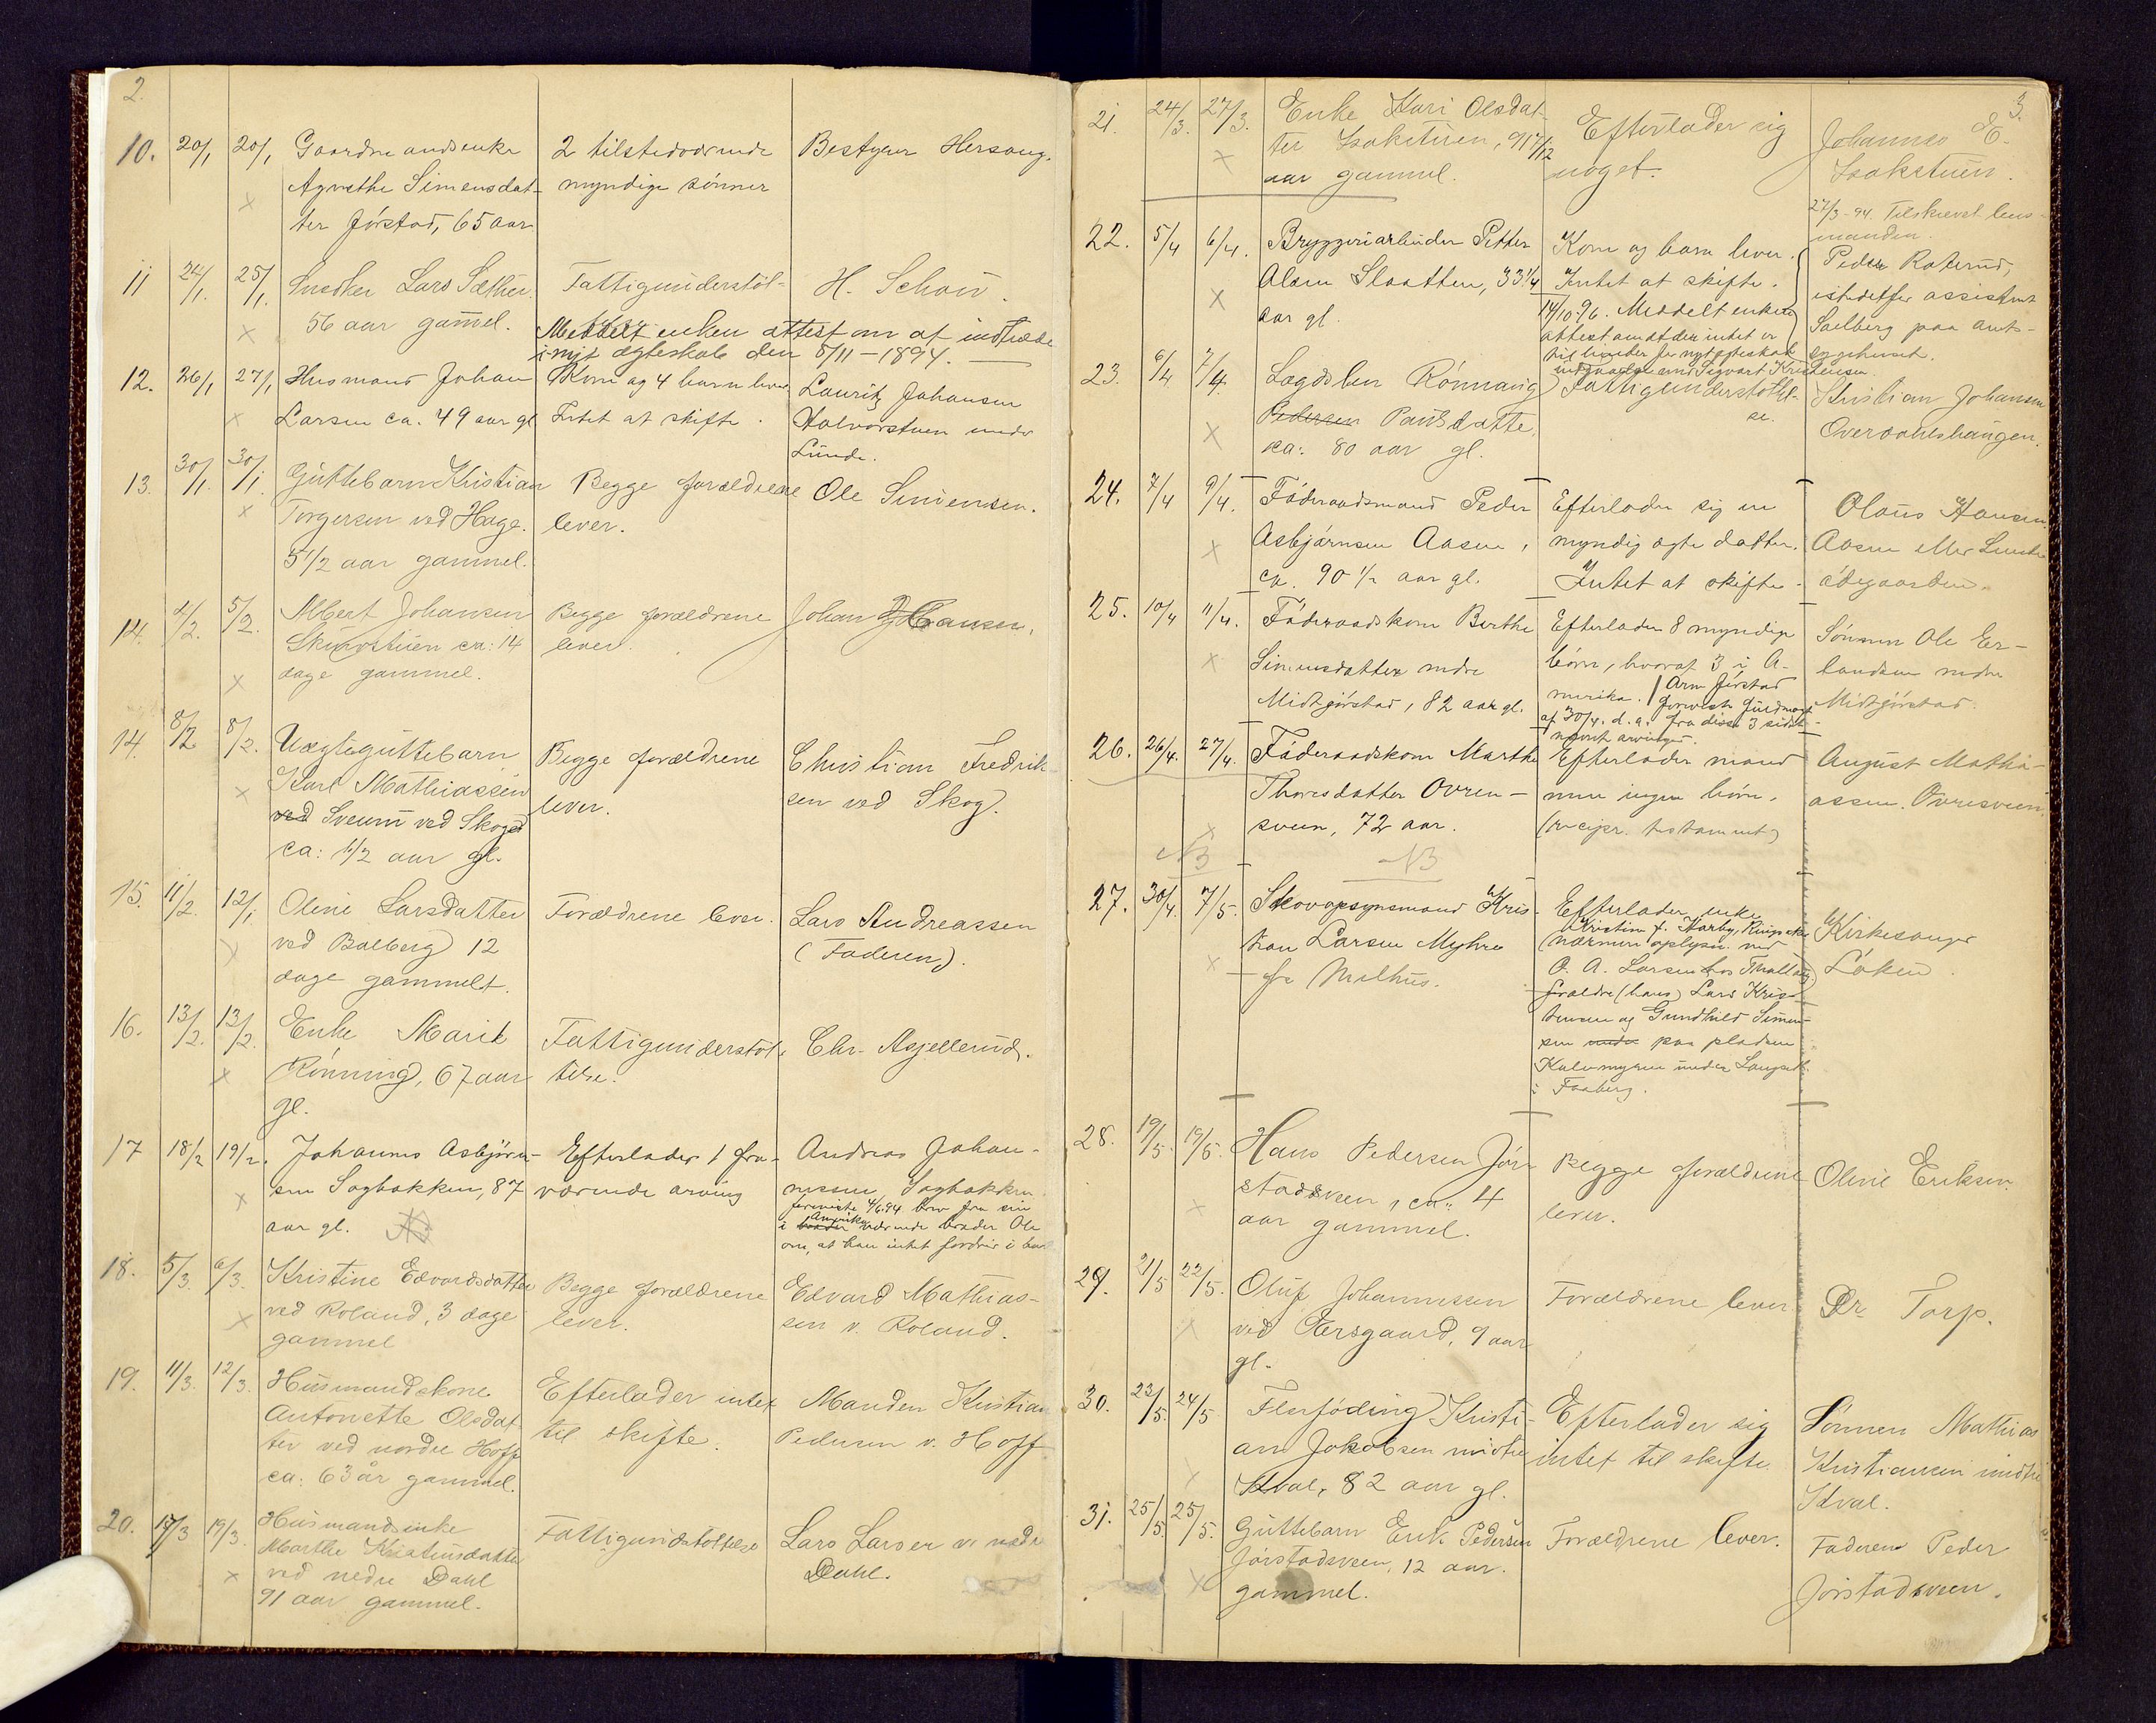 2.
10. 20/1 20/1 Gaardmandsenke 2 tilstedeværende Bestyrer Hersoug.
Agnethe Simensdat- myndige sønner
ter Jørstad, 65 aar
11 24/1. 25/1. Snedker Lars Sæther. Fattigunderstøt- H. Schou.
56 aar gammel.
Meddelt enken attest om at indtræde
i nyt ægteskab den 5/11-1894.
12. 26/1 27/1 Husmand Johan Kone og 4 barn lever Lauritz Johansen
Larsen ca. 49 aar gl Intet at skifte. Halvorstuen under
Lunde.
13. 30/1. 30/1. Guttebarn Kristian Begge forældrene Ole Simensen.
Torgersen ved Hage. lever.
5 1/2 aar gammel.
14. 4/2. 5/2. Albert Johansen Begge forældrene Johan Hansen.
Skurostuen ca: 14 lever.
dage gammel.
14. 8/2 8/2. Uægteguttebarn Begge forældrene Christian Fredrik-
Karl Mathiassen lever. sen ved Skog.
ved Sveum ved Skog
ca: 1/2 aar gl.
15. 11/2. 12/1. Oline Larsdatter Forældrene lever. Lars Andreassen
ved Balberg 12 (Faderen).
dage gammelt.
16. 13/2. 13/2. Enke Marit Fattigunderstøt- Chr. Asjellerud.
Rønning, 67 aar telse.
gl.
17 18/2 19/2. Johannes Asbjørn- Efterlader 1 fra- Andreas Johan-
sen Sagbakken, 87 værende arving nessen Sagbakken
aar gl. NB
foreviste 4/6.94 brev fra sin
i Amerika værende broder Ole
om, at han intet fordrer i boet
18. 5/3. 6/3. Kristine Edvardsdatter Begge forældrene Edvard Mathias-
ved Roland, 3 dage lever. sen v. Roland.
gammel
19. 11/3. 12/3. Husmandskone Efterlader intet Manden Kristian
Antonette Olsdat- til skifte. Pedersen v. Hoff
ter ved nordre Hoff
ca: 63 år gammel.
20. 17/3 19/3. Husmandsenke Fattigunderstøttelse Lars Larsen v. nedre
Marthe Kristensdatter Dahl.
ved nedre Dahl
91 aar gammel.
3.
21. 24/3. 27/3. Enke Kari Olsdat- Efterlader sig Johannes E.
ter Isakstuen, 91 7/12 noget. Isakstuen.
aar gammel.
27/3-94. Tilskrevet lens-
manden.
22. 5/4 6/4. Bryggeriarbeider Petter Kone og barn lever. Peder Roterud,
Alsen Slaatten, 33 1/4 Intet at skifte. istedetfor assistent
aar gl. 14/10.96. Meddelt enken Solberg paa amts-
attest om at der intet er sygehuset.
til hinder for nyt ægteskab
indgaaelse med Sigvart Kristensen.
23. 6/4 7/4. Lægdslem Rønnaug Fattigunderstøttel- Kristian Johansen
Pedersen Paulsdatter, se. Overdahlshaugen.
ca: 80 aar gl.
24. 7/4 9/4. Føderaadsmand Peder Efterlader sig en Olaus Hansen
Asbjørnsen Aasen, myndig ægte datter. Aasen eller Lunde
ca. 90 1/2 aar gl. Intet at skifte. ødegaarden.
25. 10/4 11/4. Føderaadskone Berthe Efterlader 8 myndige Sønnen Ole Er-
Simensdatter nedre børn, hvoraf 3 i A- landsen nedre
Midtjørstad, 82 aar gl. merika. / Arne Jørstad Midtjørstad.
foreviste fuldmagt
af 30/4. d. a. fra disse 3 sidst-
nævnte arvinger.
26. 26/4. 27/4. Føderaadskone Marthe Efterlader mand August Mathi-
Thoresdatter Ovren- men ingen børn. assen Øvresveen.
sveen, 72 aar. (recipr. testament)
NB NB
27. 30/4. 7/5. Skovopsynsmand Kris- Efterlader enke Kirkesanger
tian Larsen Myhre Kristine f. Narby, Ringsaker Løken.
fra Melhus. (nærmere oplysn. ved
O. A. Larsen hos Thallaug)
forældre (hans) Lars Kris-
tensen og Gundhild Simen-
sen under paa pladsen
Kalvmyren under Langset
i Faaberg.
28. 19/5. 19/5. Hans Pedersen Jør- Begge forældrene Oline Eriksen
stadsveen, ca: 4 lever.
aar gammel.
29. 21/5 22/5. Oluf Johannessen Forældrene lever. Dr Torp.
ved Ersgaard, 9 aar
gl.
30. 23/5. 24/5 Flerføding Kristi- Efterlader sig Sønnen Mathias
an Jakobsen midtre intet til skifte Kristiansen midtre
Kval, 82 aar gl. Kval.
31. 25/5. 25/5. Guttebarn Erik Pedersen Forældrene lever. Faderen Peder
Jørstadsveen, 12 aar. Jørstadsveen.
gammel.